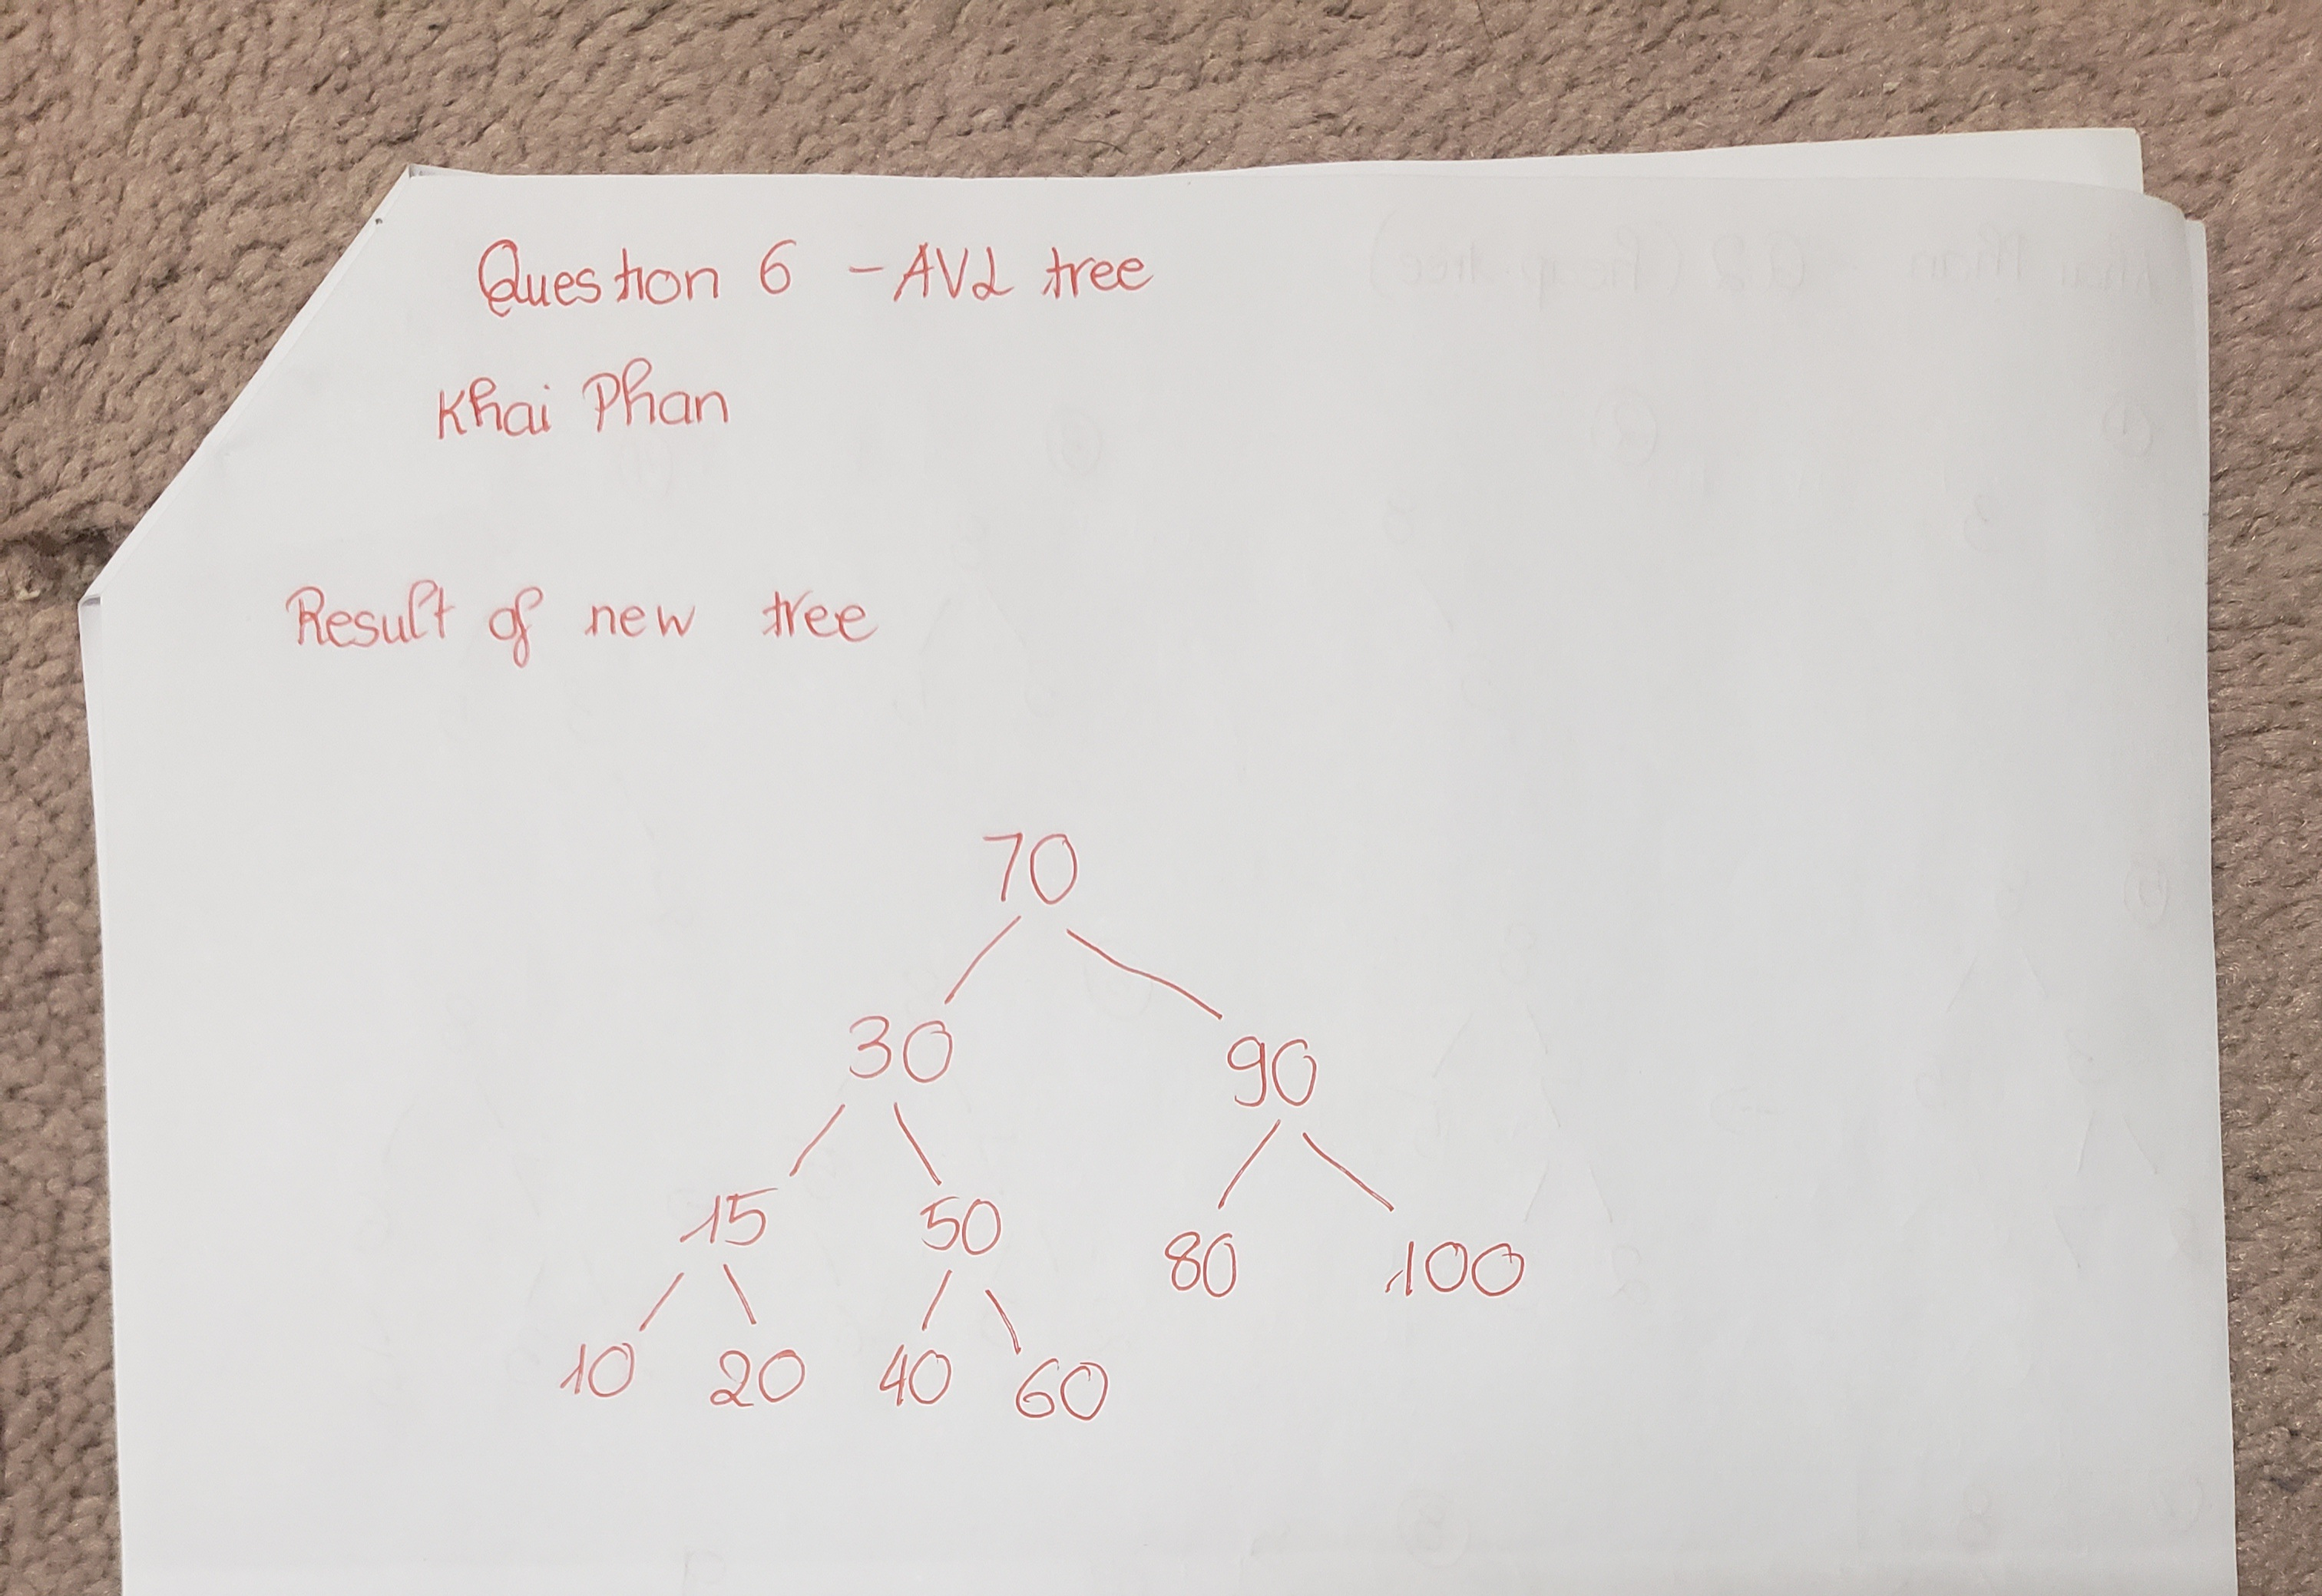 Question 6 - AVL tree
Khai Phan
Result of new tree
70
30 90
15 50 80 100
10 20 40 60